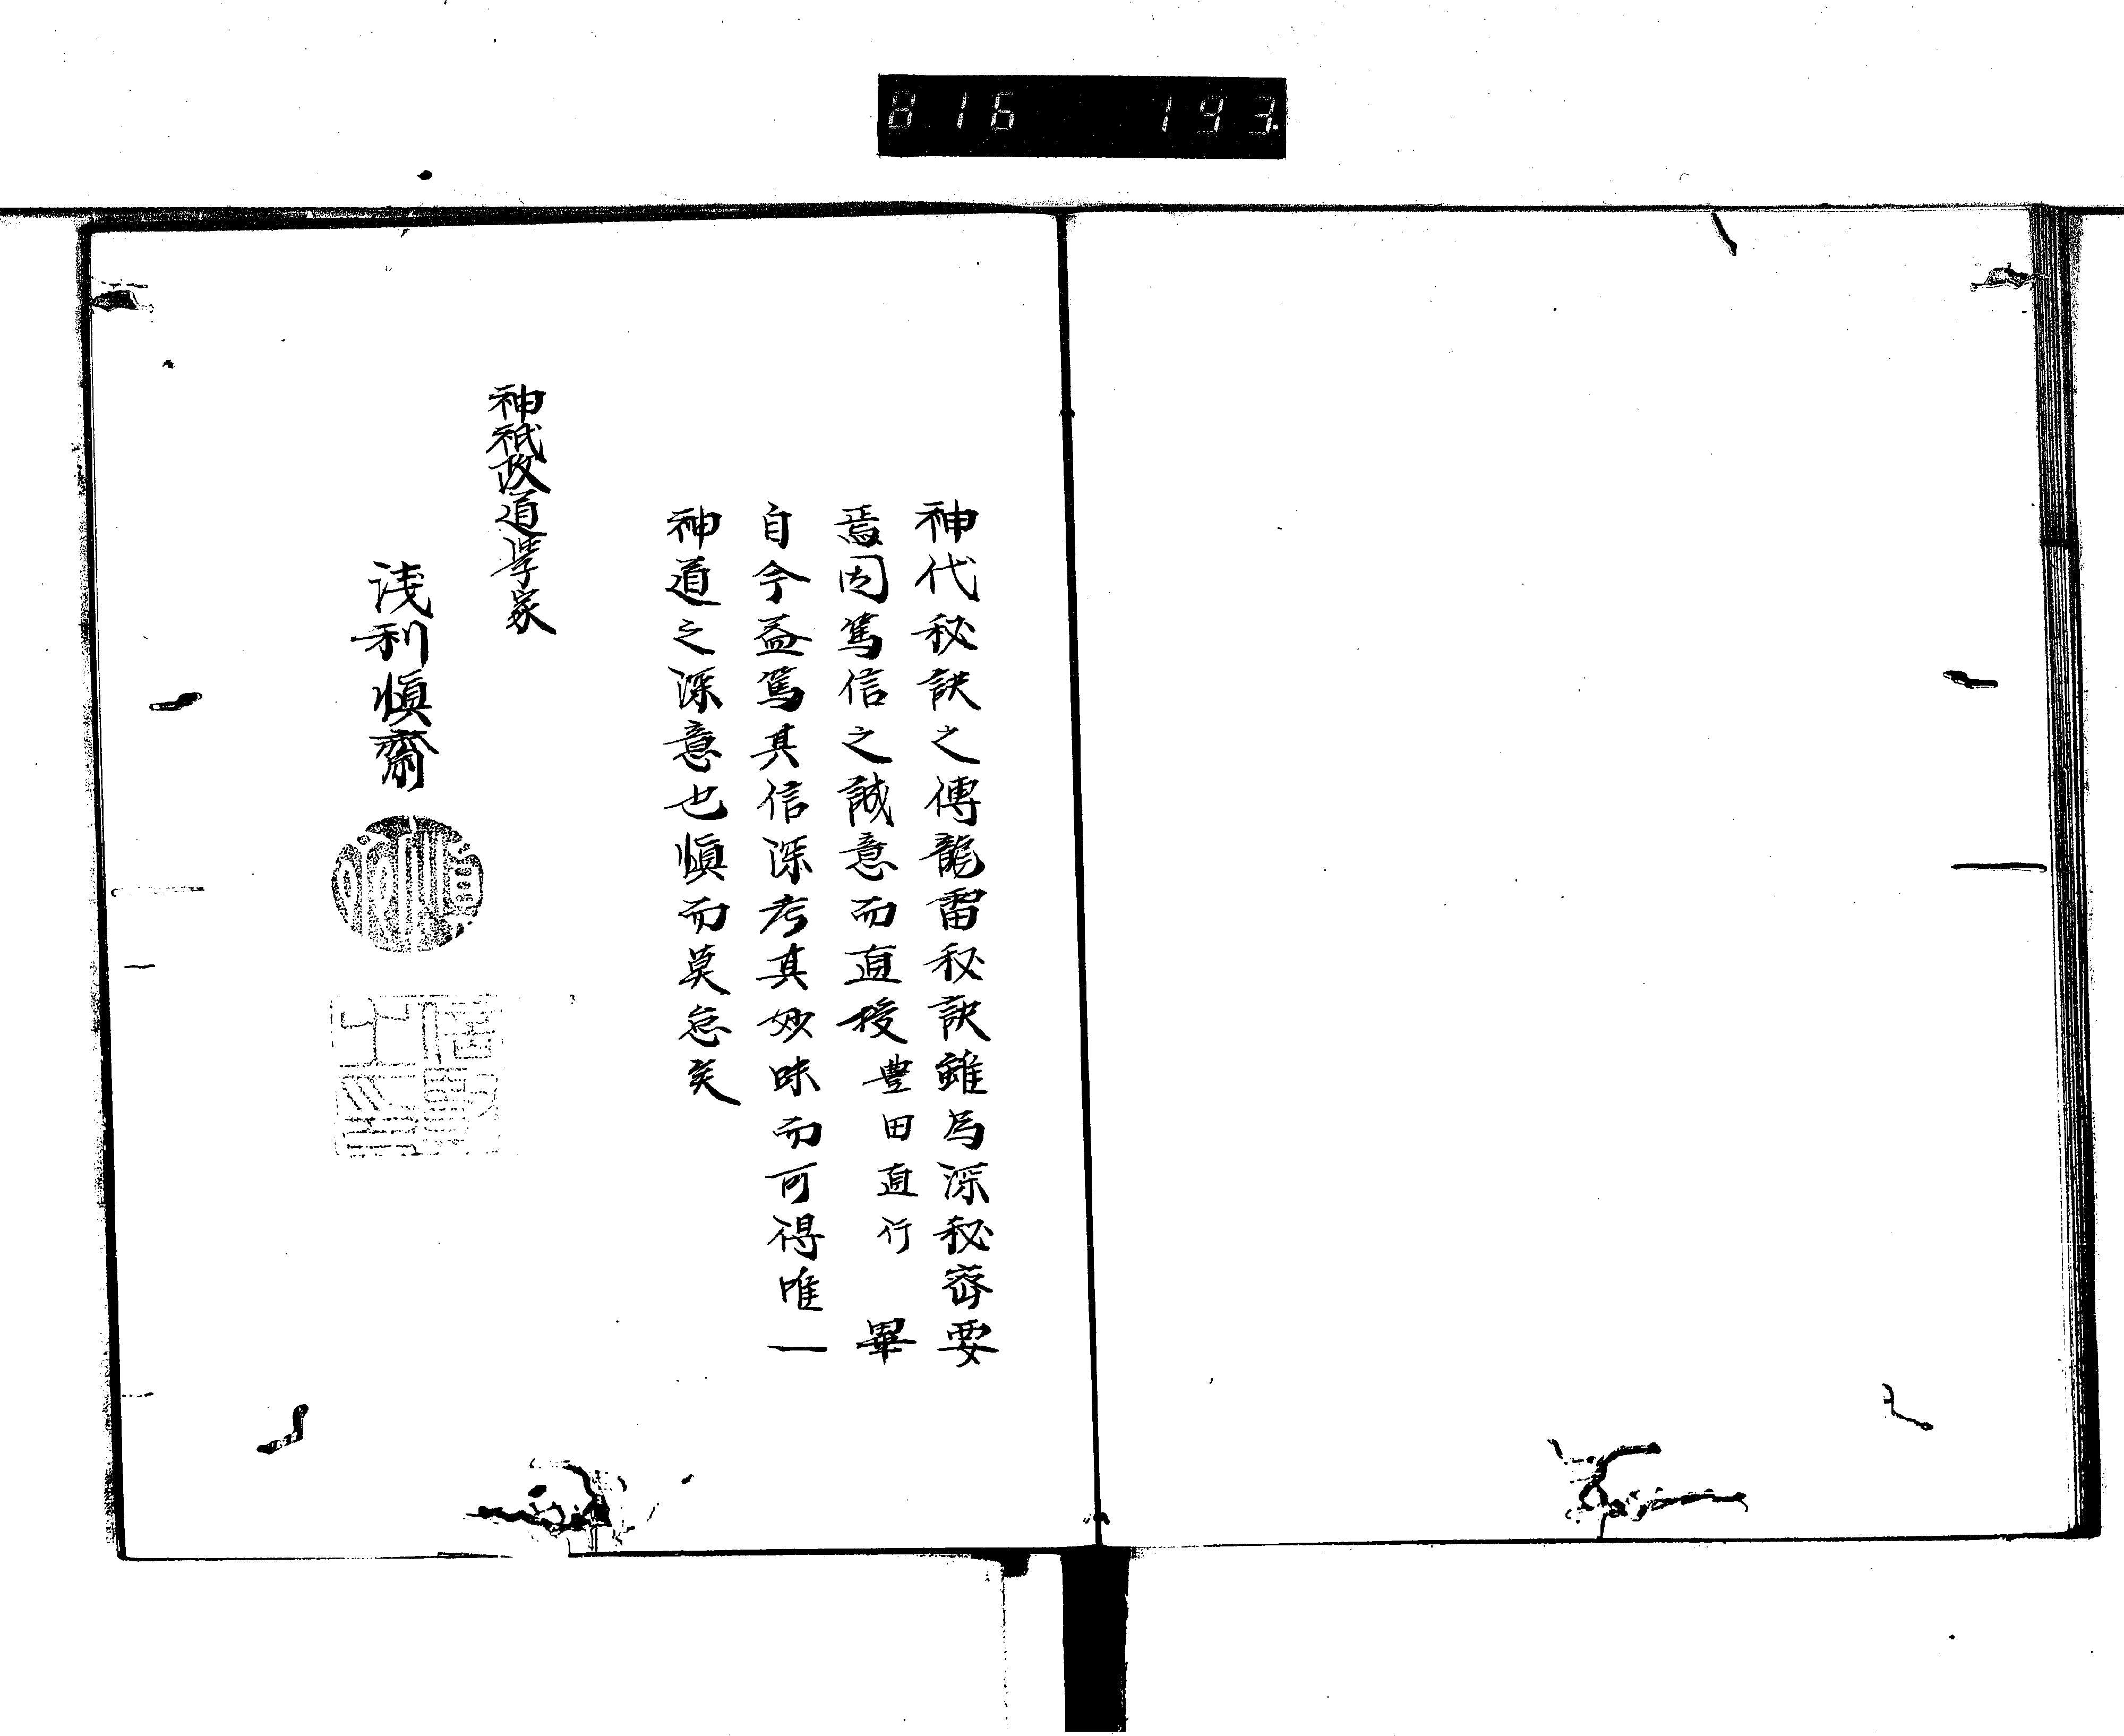 816 193
神代秘訣之傳龍雷秘訣雖為深秘密要
焉因篤信之誠意而直授豊田直行 畢
自今益篤其信深考其妙味而可得唯一
神道之深意也慎而莫怠矣
神祇政道学家
浅利慎齋